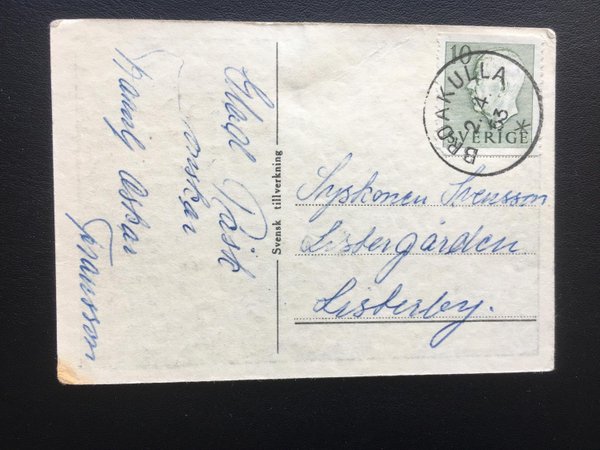 Glad Påsk
önskar
Familj Oskar
Fransson
Svensk tillverkning
10
SVERIGE
BROAKULLA
2.4.
53
Syskonen Svensson
Listergården
Listerby.